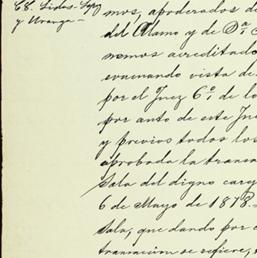 CC. Lirdos Lopez
y Uranga
mos, apoderados de
del Alamo y de Dª
nemos acreditado
evacuando vista de
por el Juez 6º de lo
por auto de este Juz
y previos todos los
aprobada la transa
Sala del digno carg
6 de Mayo de 1878.
Sala, que dando por
transacion se refiere,